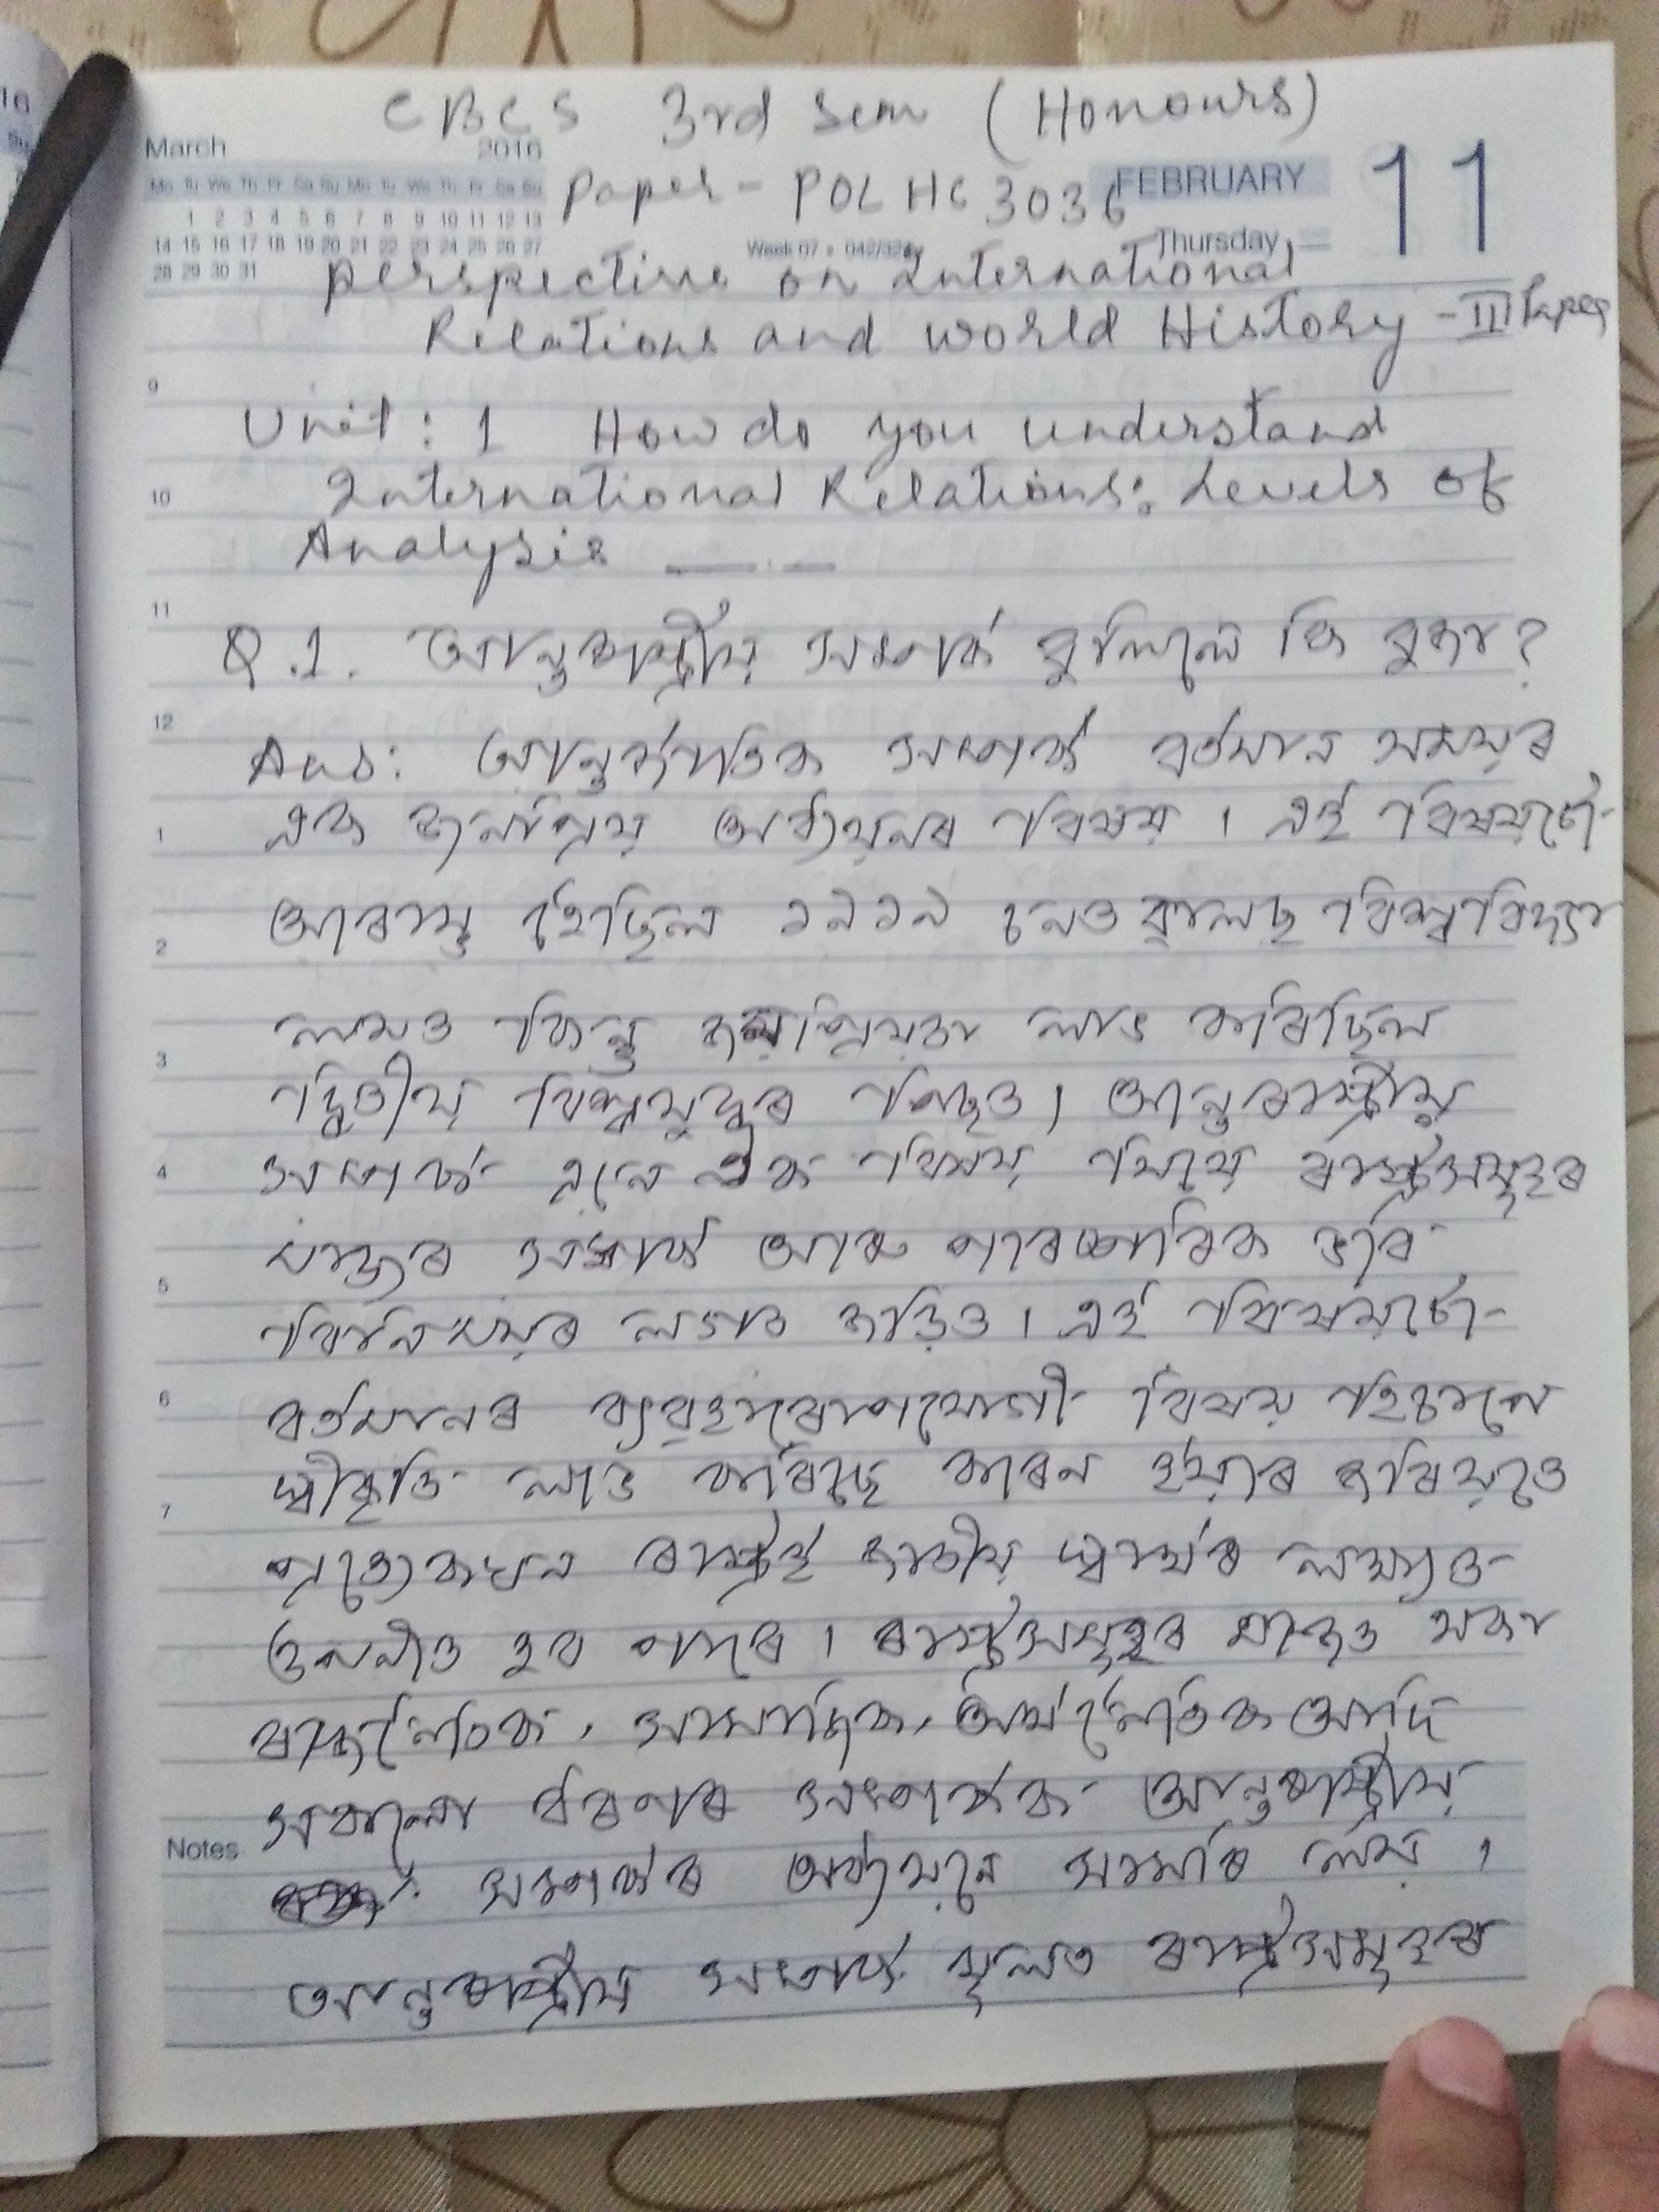 CBCS 3rd Sem (Honours)
March 2016
Mo Tu We Th Fr Sa Su Mo Tu We Th Fr Sa Su
1 2 3 4 5 6 7 8 9 10 11 12 13
14 15 16 17 18 19 20 21 22 23 24 25 26 27
28 29 30 31
Paper - POL HC 3036
FEBRUARY 11
Week 07 • 042/324
Thursday
perspective on International
Relations and world History - II Paper
9
Unit : 1 How do you understand
10
International Relations: Levels of
Analysis
11
Q.1. আন্তঃৰাষ্ট্ৰীয় সম্পৰ্ক বুলিলে কি বুজা?
12
Ans: আন্তৰ্জাতিক সম্পৰ্ক বৰ্তমান সময়ৰ
1
এক জনপ্ৰিয় অধ্যয়নৰ বিষয়। এই বিষয়টো
2
আৰম্ভ হৈছিল ১৯১৯ চনত ৱালছ বিশ্ববিদ্যা
3
লয়ত কিন্তু জনপ্ৰিয়তা লাভ কৰিছিল
দ্বিতীয় বিশ্বযুদ্ধৰ পিছত। আন্তঃৰাষ্ট্ৰীয়
4
সম্পৰ্ক এনে এক বিষয় যিয়ে ৰাষ্ট্ৰসমূহৰ
মাজৰ সম্পৰ্ক আৰু পাৰস্পৰিক ভাৱ
5
বিনিময়ৰ লগত জড়িত। এই বিষয়টো
6
বৰ্তমানৰ ব্যৱহাৰোপযোগী বিষয় হিচাপে
স্বীকৃতি লাভ কৰিছে কাৰন ইয়াৰ জৰিয়তে
7
প্ৰত্যেকখন ৰাষ্ট্ৰই জাতীয় স্বাৰ্থৰ লক্ষ্যত
উপনীত হব পাৰে। ৰাষ্ট্ৰসমূহৰ মাজত থকা
ৰাজনৈতিক, সামাজিক, অৰ্থনৈতিক আদি
সকলো ধৰণৰ সম্পৰ্কক আন্তঃৰাষ্ট্ৰীয়
Notes
সম্পৰ্কৰ অধ্যয়নে সামৰি লয়।
আন্তঃৰাষ্ট্ৰীয় সম্পৰ্ক মূলত ৰাষ্ট্ৰসমূহৰ